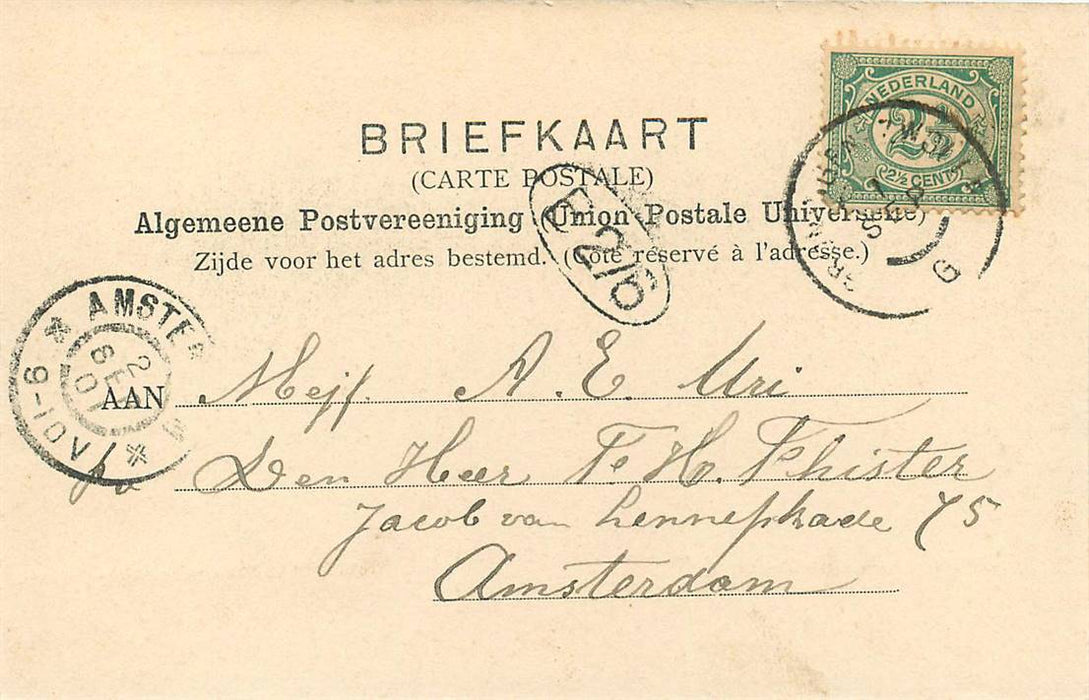 NEDERLAND
2½
2½ CENT
BRIEFKAART
(CARTE POSTALE)
Algemeene Postvereeniging (Union Postale Universelle)
Zijde voor het adres bestemd. (Coté reservé à l'adresse.)
2/6
AMSTER
2
SE
01
6-10V
AAN Mejf. A. E. Uri
p/a Den Heer F. H. Fhister
Jacob van Lennepkade 75
Amsterdam